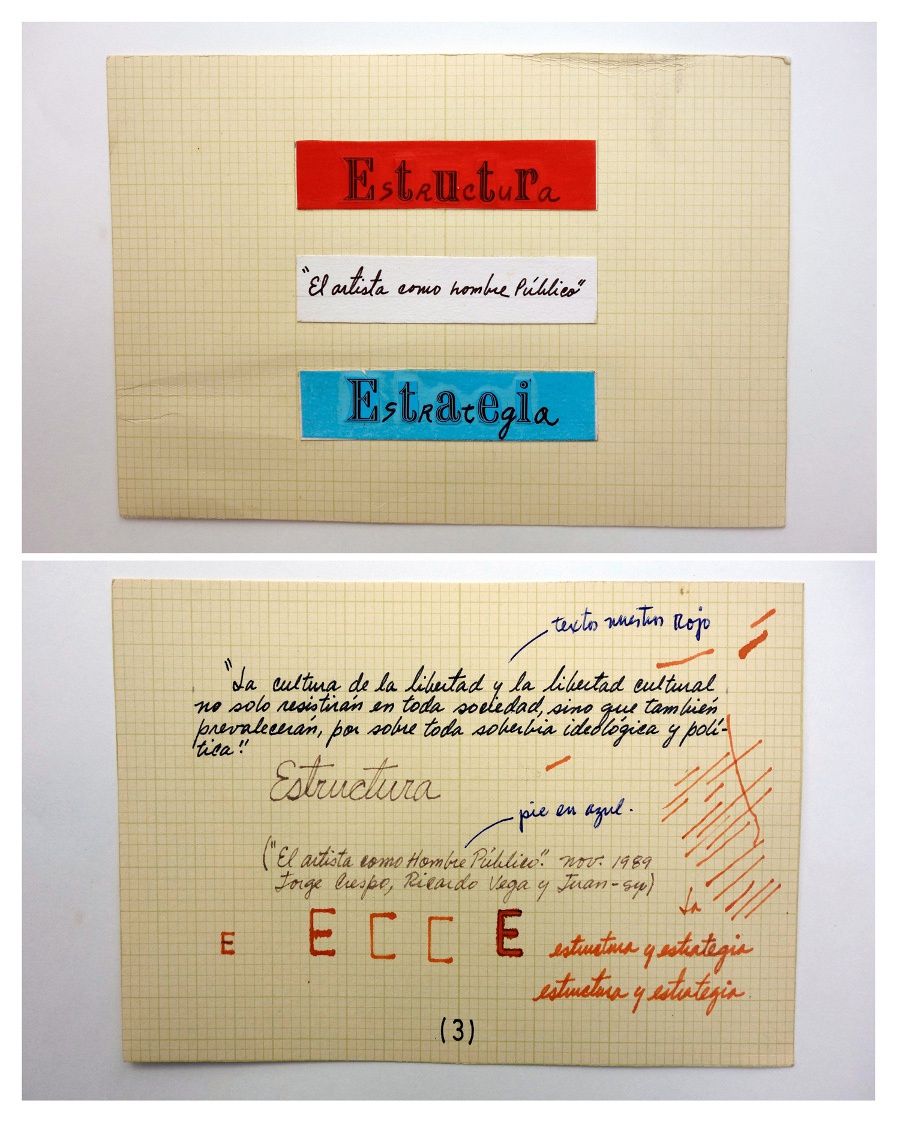 Estructura
"El artista como hombre Público"
Estrategia
textos nuestros Rojo
"La cultura de la libertad y la libertad cultural
no solo resistirán en toda sociedad, sino que también
prevalecerán, por sobre toda soberbia ideológica y polí-
tica".
Estructura
pie en azul.
("El artista como Hombre Público". nov. 1989
Jorge Crespo, Ricardo Vega y Juan-sy)
La
E E C C E estructura y estrategia
estructura y estrategia
(3)